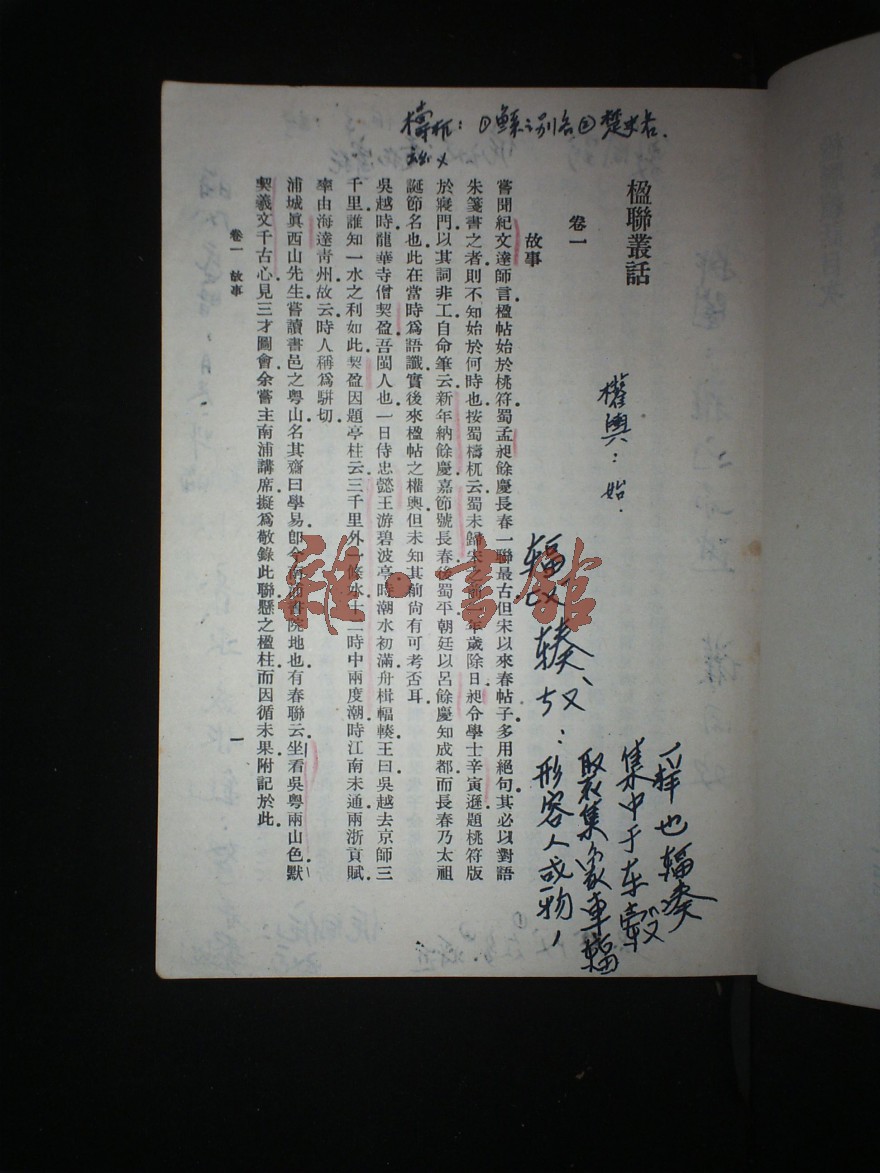 楹聯叢話
卷一
故事
嘗聞紀文達師言楹帖始於桃符蜀孟昶餘慶長春一聯最古但宋以來春帖子多用絕句其必以對語
朱箋書之者則不知始於何時也按蜀檮杌云蜀未歸宋之前一年歲除日昶令學士辛寅遜題桃符版
於寢門以其詞非工自命筆云新年納餘慶嘉節號長春後蜀平朝廷以呂餘慶知成都而長春乃太祖
誕節名也此在當時為語讖實後來楹帖之權輿但未知其前尚有可考否耳
吳越時龍華寺僧契盈吾閩人也一日侍忠懿王游碧波亭時潮水初滿舟楫輻輳王曰吳越去京師三
千里誰知一水之利如此契盈因題亭柱云三千里外一條水十二時中兩度潮時江南未通兩浙貢賦
率由海達青州故云時人稱為駢切
浦城眞西山先生嘗讀書邑之粵山名其齋曰學易卽今南浦書院地也有春聯云坐看吳粵兩山色默
契羲文千古心見三才圖會余嘗主南浦講席擬為敬錄此聯懸之楹柱而因循未果附記於此
卷一 故事
一
檮杌：①鯀之别名②楚史名.
權輿：始.
辐 辏
：形容人或物，
聚集象車輻
集中于车毂
一样也辐凑
雜·書館